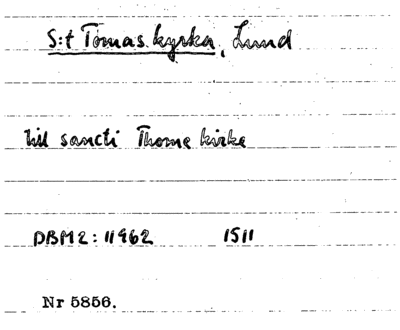 S:t Tomas kyrka, Lund
till sancti Thome kirke
DBM2: 11962 1511
Nr 5856.